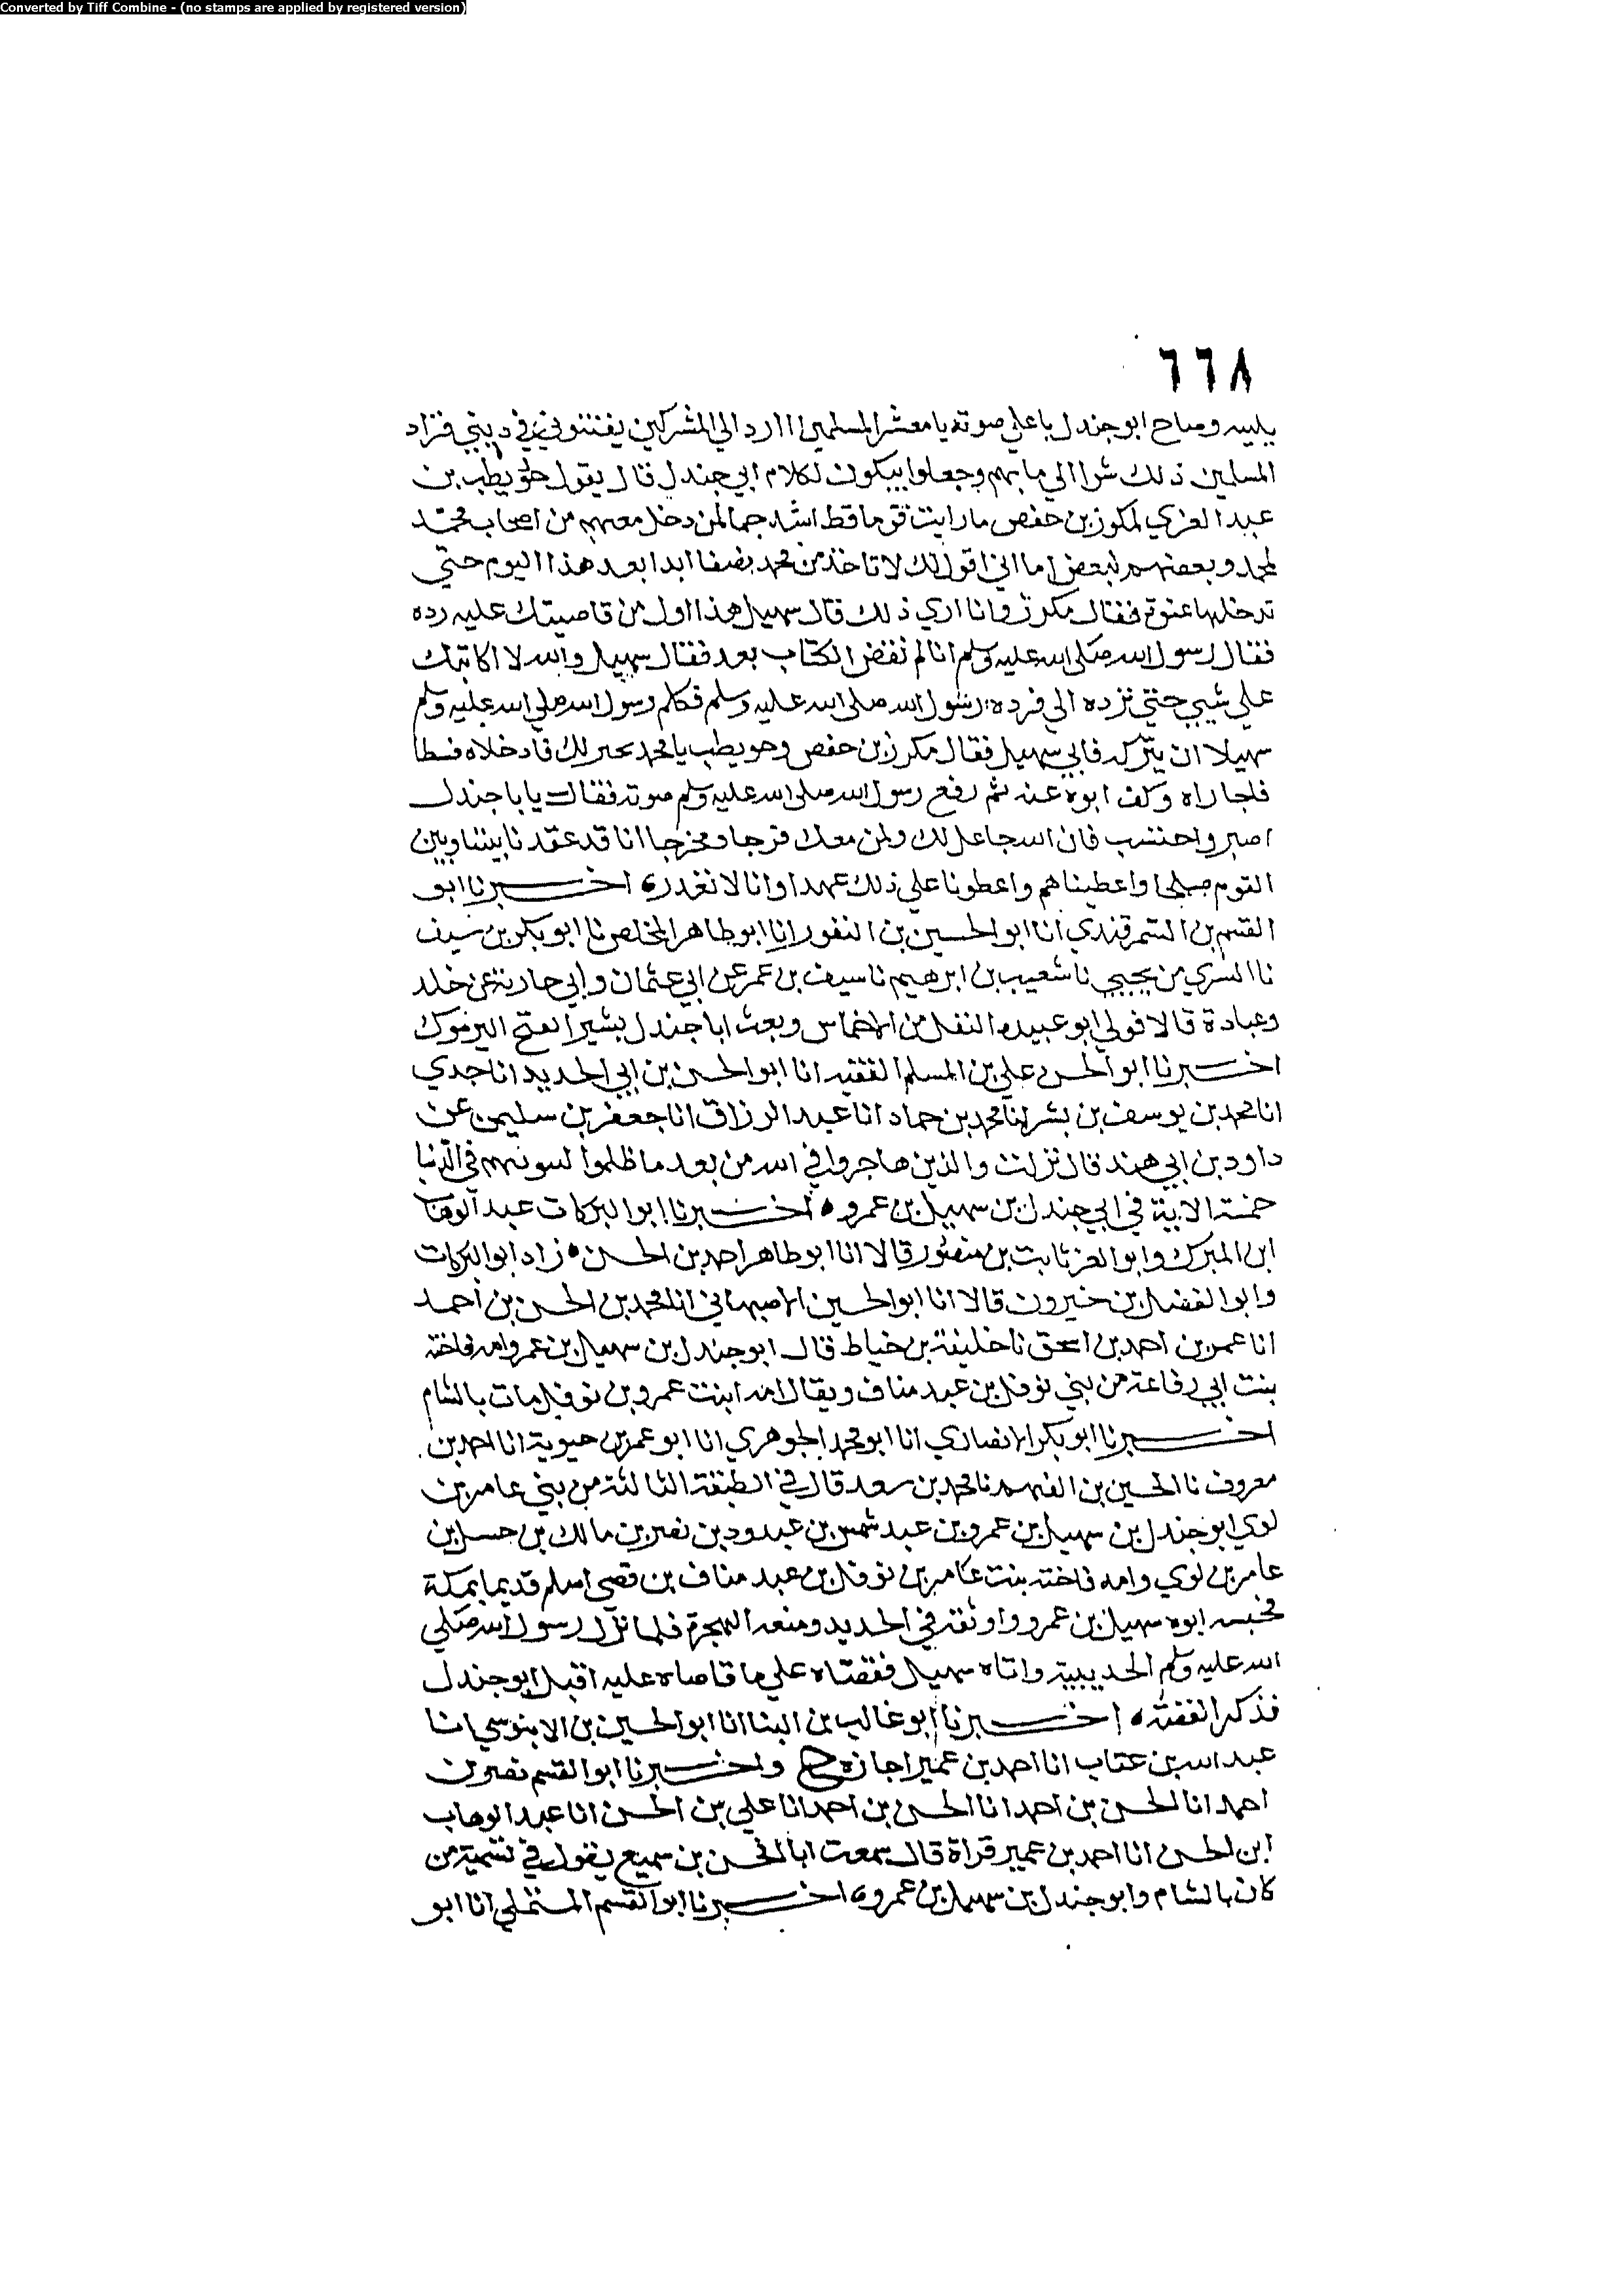 Converted by Tiff Combine - (no stamps are applied by registered version)
٦٦٨
يلببه وصاح ابو جندل باعلي صوته يا معشر المسلمين اارد الي المشركين يفتنوني في ديني فزاد
المسلمين ذلك شرا الي ما بهم وجعلوا يبكون لكلام ابي جندل قال يقول حويطب بن
عبد العزي لمكرز بن حفص ما رايت قوما قط اشد حبا لمن دخل معهم من اصحاب محمد
لمحمد وبعضهم لبعض اما اني اقول لك لا تاخذ من محمد نصفا ابدا بعد هذا اليوم حتي
تدخلها عنوة فقال مكرز وانا اري ذلك قال سهيل هذا اول من قاضيتك عليه رده
فقال رسول الله صلى الله عليه وسلم انا لم نقض الكتاب بعد فقال سهيل والله لا اكاتبك
علي شيي حتي ترده الي فرده رسول الله صلى الله عليه وسلم فكلم رسول الله صلي الله عليه وسلم
سهيلا ان يتركه فابي سهيل فقال مكرز بن حفص وحويطب يا محمد نجيره لك فادخلاه فسطا
فاجاراه وكف ابوه عنه ثم رفع رسول الله صلى الله عليه وسلم صوته فقال يابا جندل
اصبر واحتسب فان الله جاعل لك ولمن معك فرجا ومخرجا انا قد عقدنا بيننا وبين
القوم صلحا واعطيناهم واعطونا علي ذلك عهدا وانا لا نغدر ه اخبرنا ابو
القسم بن السمرقندي انا ابو الحسين بن النقور انا ابو طاهر المخلص نا ابو بكر بن سيف
نا السري من يحيي نا شعيب بن ابرهيم نا سيف بن عمر عن ابي عثمان وابي حارثة عن خلد
وعبادة قالا فولي ابو عبيدة النفل من الاخماس وبعث ابا جندل بشيرا بفتح اليرموك
اخبرنا ابو الحسن علي بن المسلم الفقيه انا ابو الحسن بن ابي الحديد انا جدي
انا محمد بن يوسف بن بشر انا محمد بن حماد انا عبد الرزاق انا جعفر بن سليمن عن
داود بن ابي هند قال نزلت والذين هاجروا في الله من بعد ما ظلموا لنبونهم في الدنيا
حسنة الاية في ابي جندل بن سهيل بن عمرو ه اخبرنا ابو البركات عبد الوهاب
ابن المبرك وابو العز ثابت بن منصور قالا انا ابو طاهر احمد بن الحسن ه زاد ابو البركات
وابو الفضل بن خيرون قالا انا ابو الحسين الاصبهاني انا محمد بن الحسن بن احمد
انا عمر بن احمد بن اسحق نا خليفة بن خياط قال ابو جندل بن سهيل بن عمرو امه فاخته
بنت ابي رفاعة من بني نوفل بن عبد مناف ويقال امه ابنت عمرو بن نوفل مات بالشام
اخبرنا ابو بكر الانصاري انا ابو محمد الجوهري انا ابو عمر بن حيوية انا احمد بن
معروف نا الحسين بن الفهم نا محمد بن سعد قال في الطبقة الثالثة من بني عامر بن
لوي ابو جندل بن سهيل بن عمرو بن عبد شمس بن عبد ود بن نصر بن مالك بن حسل بن
عامر بن لوي وامه فاخته بنت عامر بن نوفل بن عبد مناف بن قصي اسلم قديما بمكة
فحبسه ابوه سهيل بن عمرو واوثقه في الحديد ومنعه الهجرة فلما نزل رسول الله صلي
الله عليه وسلم الحديبية واتاه سهيل فقاضاه علي ما قاضاه عليه اقبل ابو جندل
فذكر القصة ه اخبرنا ابو غالب بن البنا انا ابو الحسين بن الابنوسي انا
عبد الله بن عتاب انا احمد بن عمير اجازه ح واخبرنا ابو القسم نصر بن
احمد انا الحسن بن احمد انا الحسن بن احمد انا علي بن الحسن انا عبد الوهاب
ابن الحسن انا احمد بن عمير قراة قال سمعت ابا الحسن بن سميع يقول في تسمية من
كان بالشام وابو جندل بن سهيل بن عمرو ه اخبرنا ابو القسم المستملي انا ابو